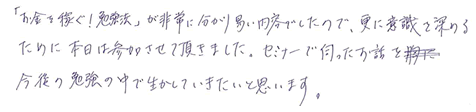 「お金を稼ぐ！勉強法」が非常に分かり易い内容でしたので、更に意識を深める
ために本日は参加させて頂きました。セミナーで伺ったお話を
今後の勉強の中で生かしていきたいと思います。